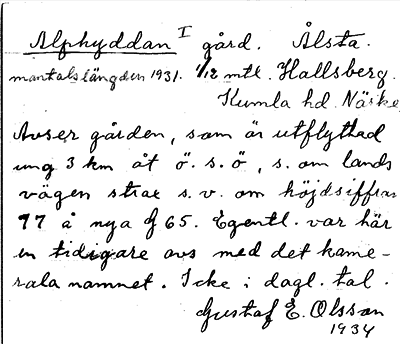 Alphyddan I gård. Ålsta.
mantalslängden 1931. 1/12 mtl. Hallsberg.
Kumla hd. Närke
Avser gården, som är utflyttad
ung 3 km åt ö. s. ö, s. om lands
vägen strax s. v. om höjdsiffran
77 å nya G 65. Egentl. var här
en tidigare avs med det kame-
rala namnet. Icke i dagl. tal.
Gustaf E. Olsson
1934